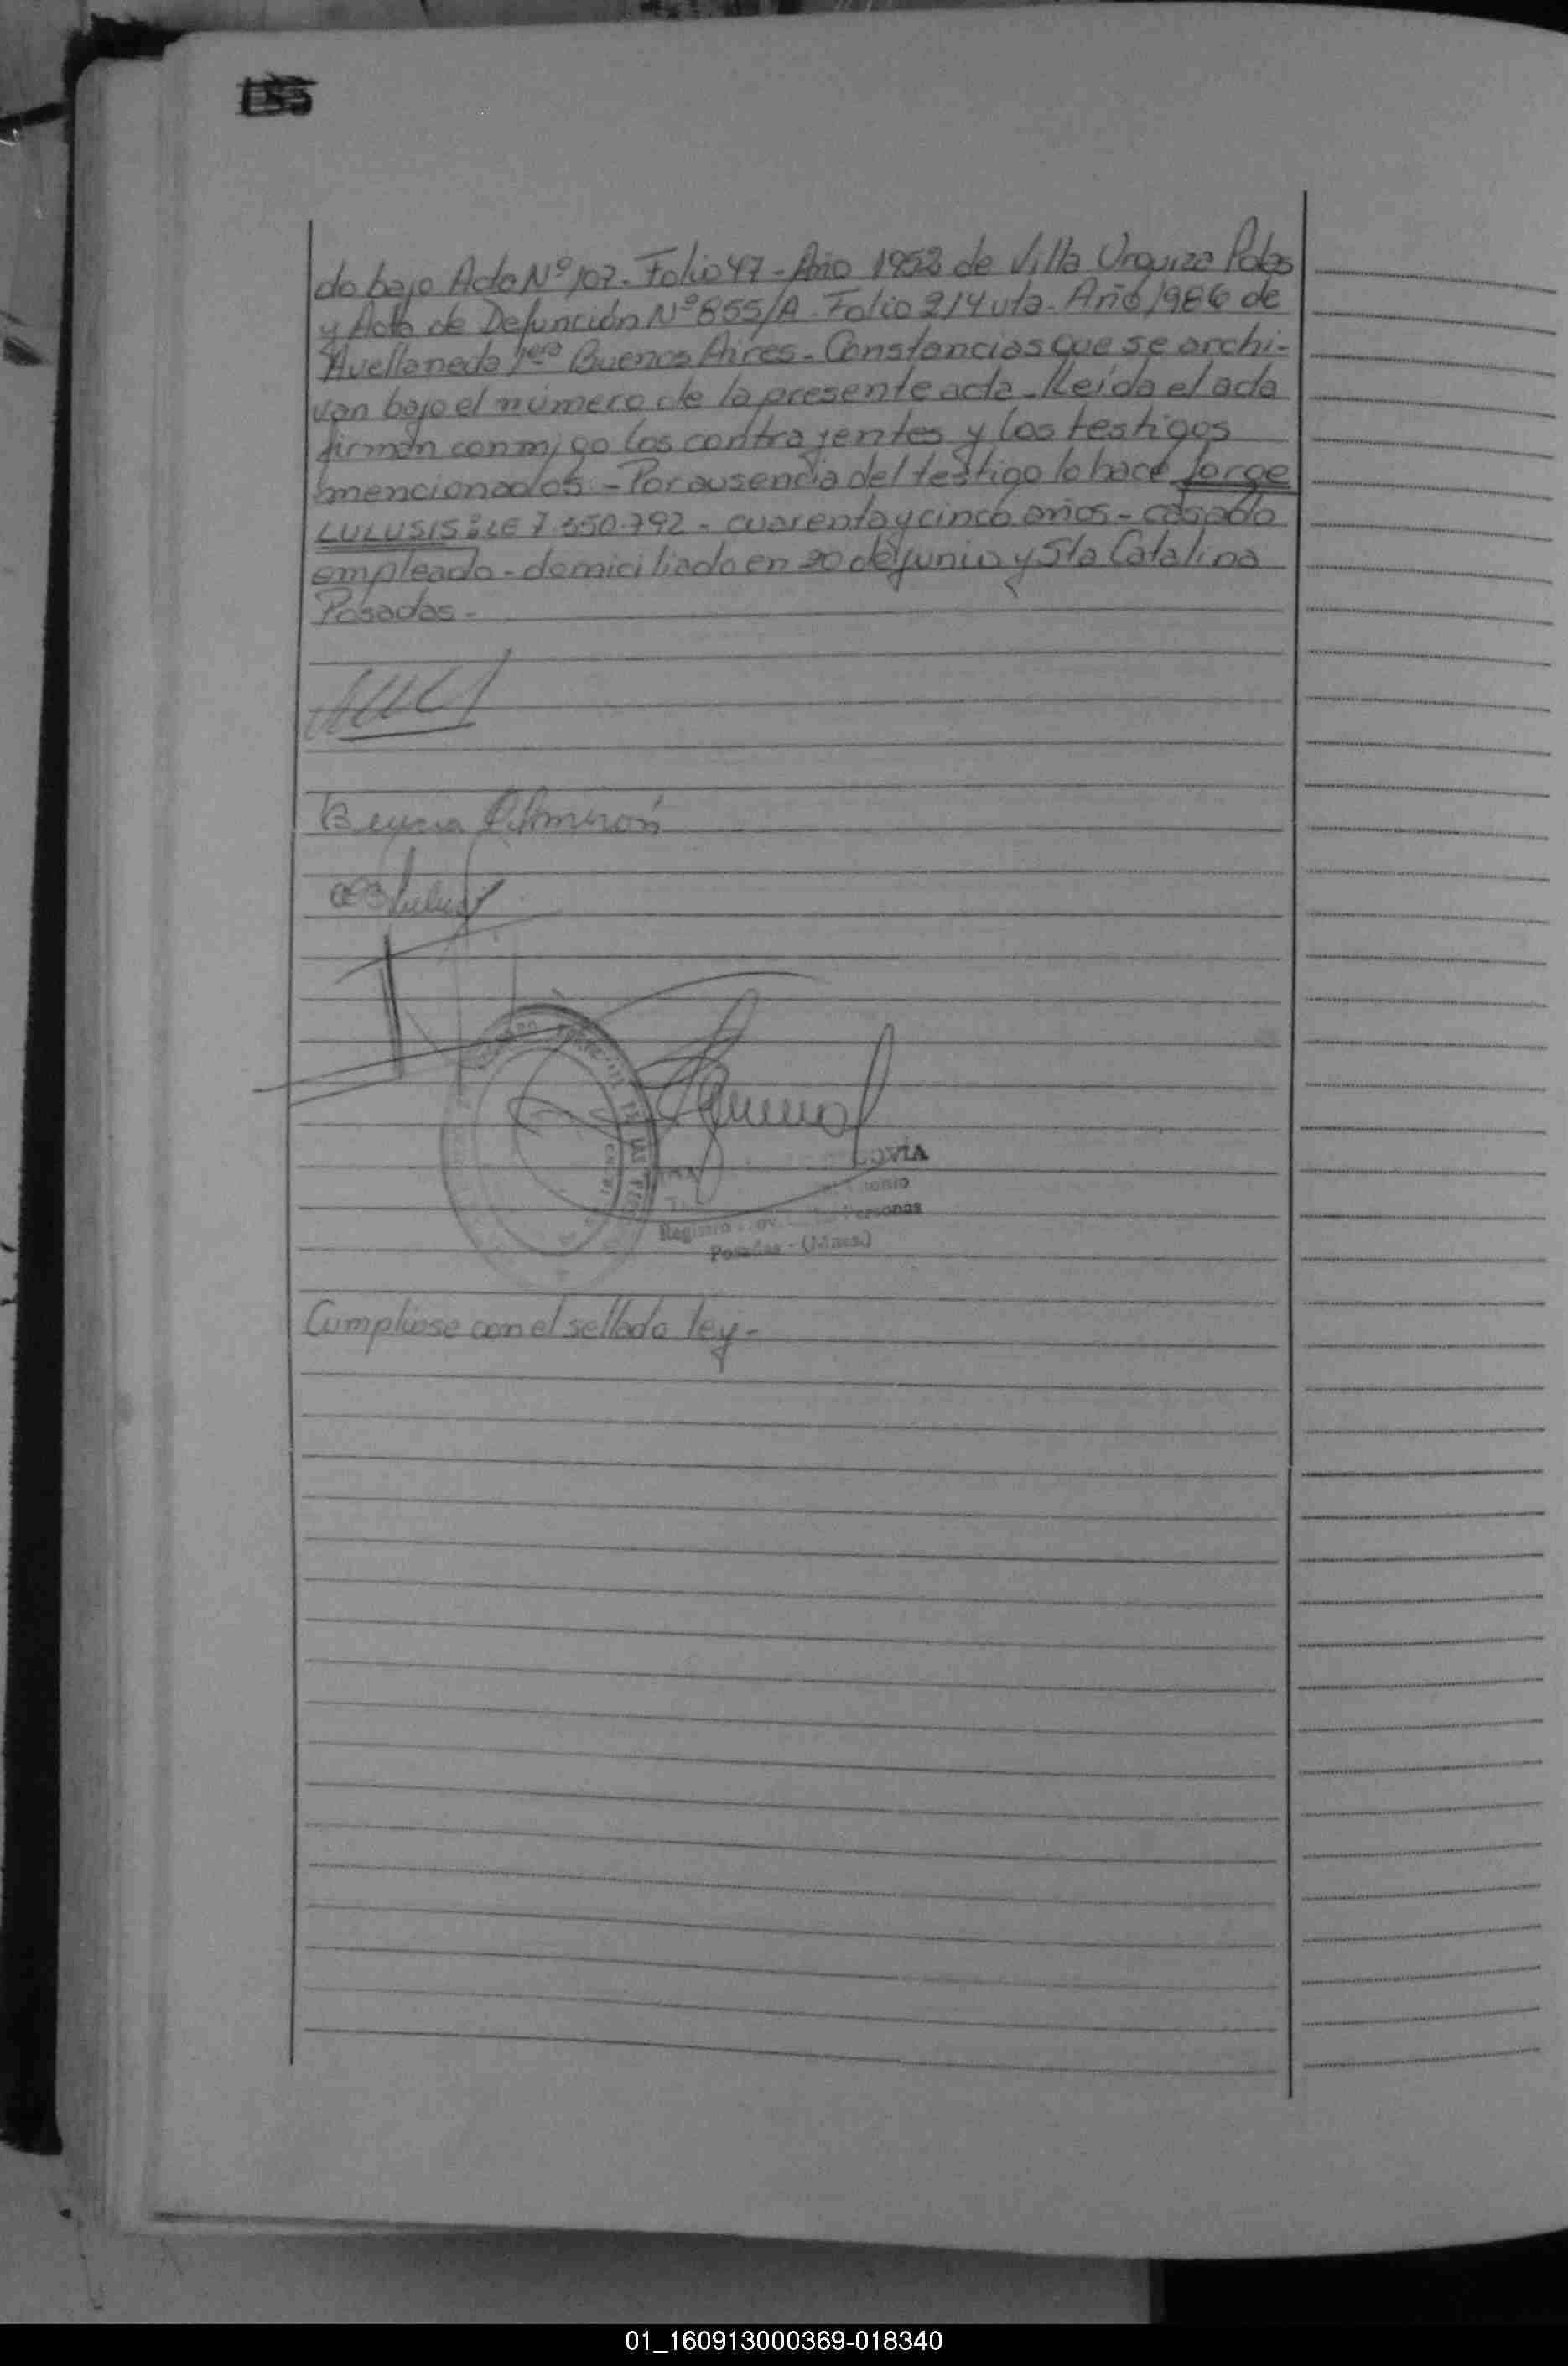 155
do bajo Acta Nº 107. Folio 47 - Año 1952 de Villa Urquiza Pdas
y Acta de Defunción Nº 855/A. Folio 214 vta. Año 1986 de
Avellaneda 1era Buenos Aires - Constancias que se archi-
van bajo el número de la presente acta. Leída el acta
firman conmigo los contrayentes y los testigos
mencionados - Por ausencia del testigo lo hace Jorge
LULUSIS: LE 7.550.792 - cuarenta y cinco años - casado
empleado - domiciliado en 20 de junio y Sta Catalina
Posadas -
OVIA
Registro Personas
Posadas - (Mnes.)
Cumpliose con el sellado ley -
01_160913000369-018340